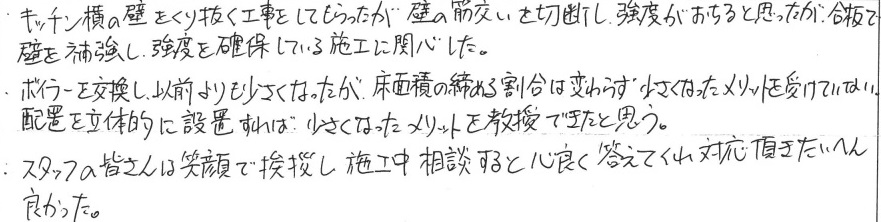 ・キッチン横の壁をくり抜く工事をしてもらったが壁の筋交いを切断し、強度がおちると思ったが、合板で
壁を補強し、強度を確保している施工に関心した。
・ボイラーを交換し、以前よりも少さくなったが、床面積の締める割合は変わらず少さくなったメリットを受けていない。
配置を立体的に設置すれば、少さくなったメリットを教授できたと思う。
・スタッフの皆さんは笑顔で挨拶し施工中相談すると心良く答えてくれ対応頂きたいへん
良かった。